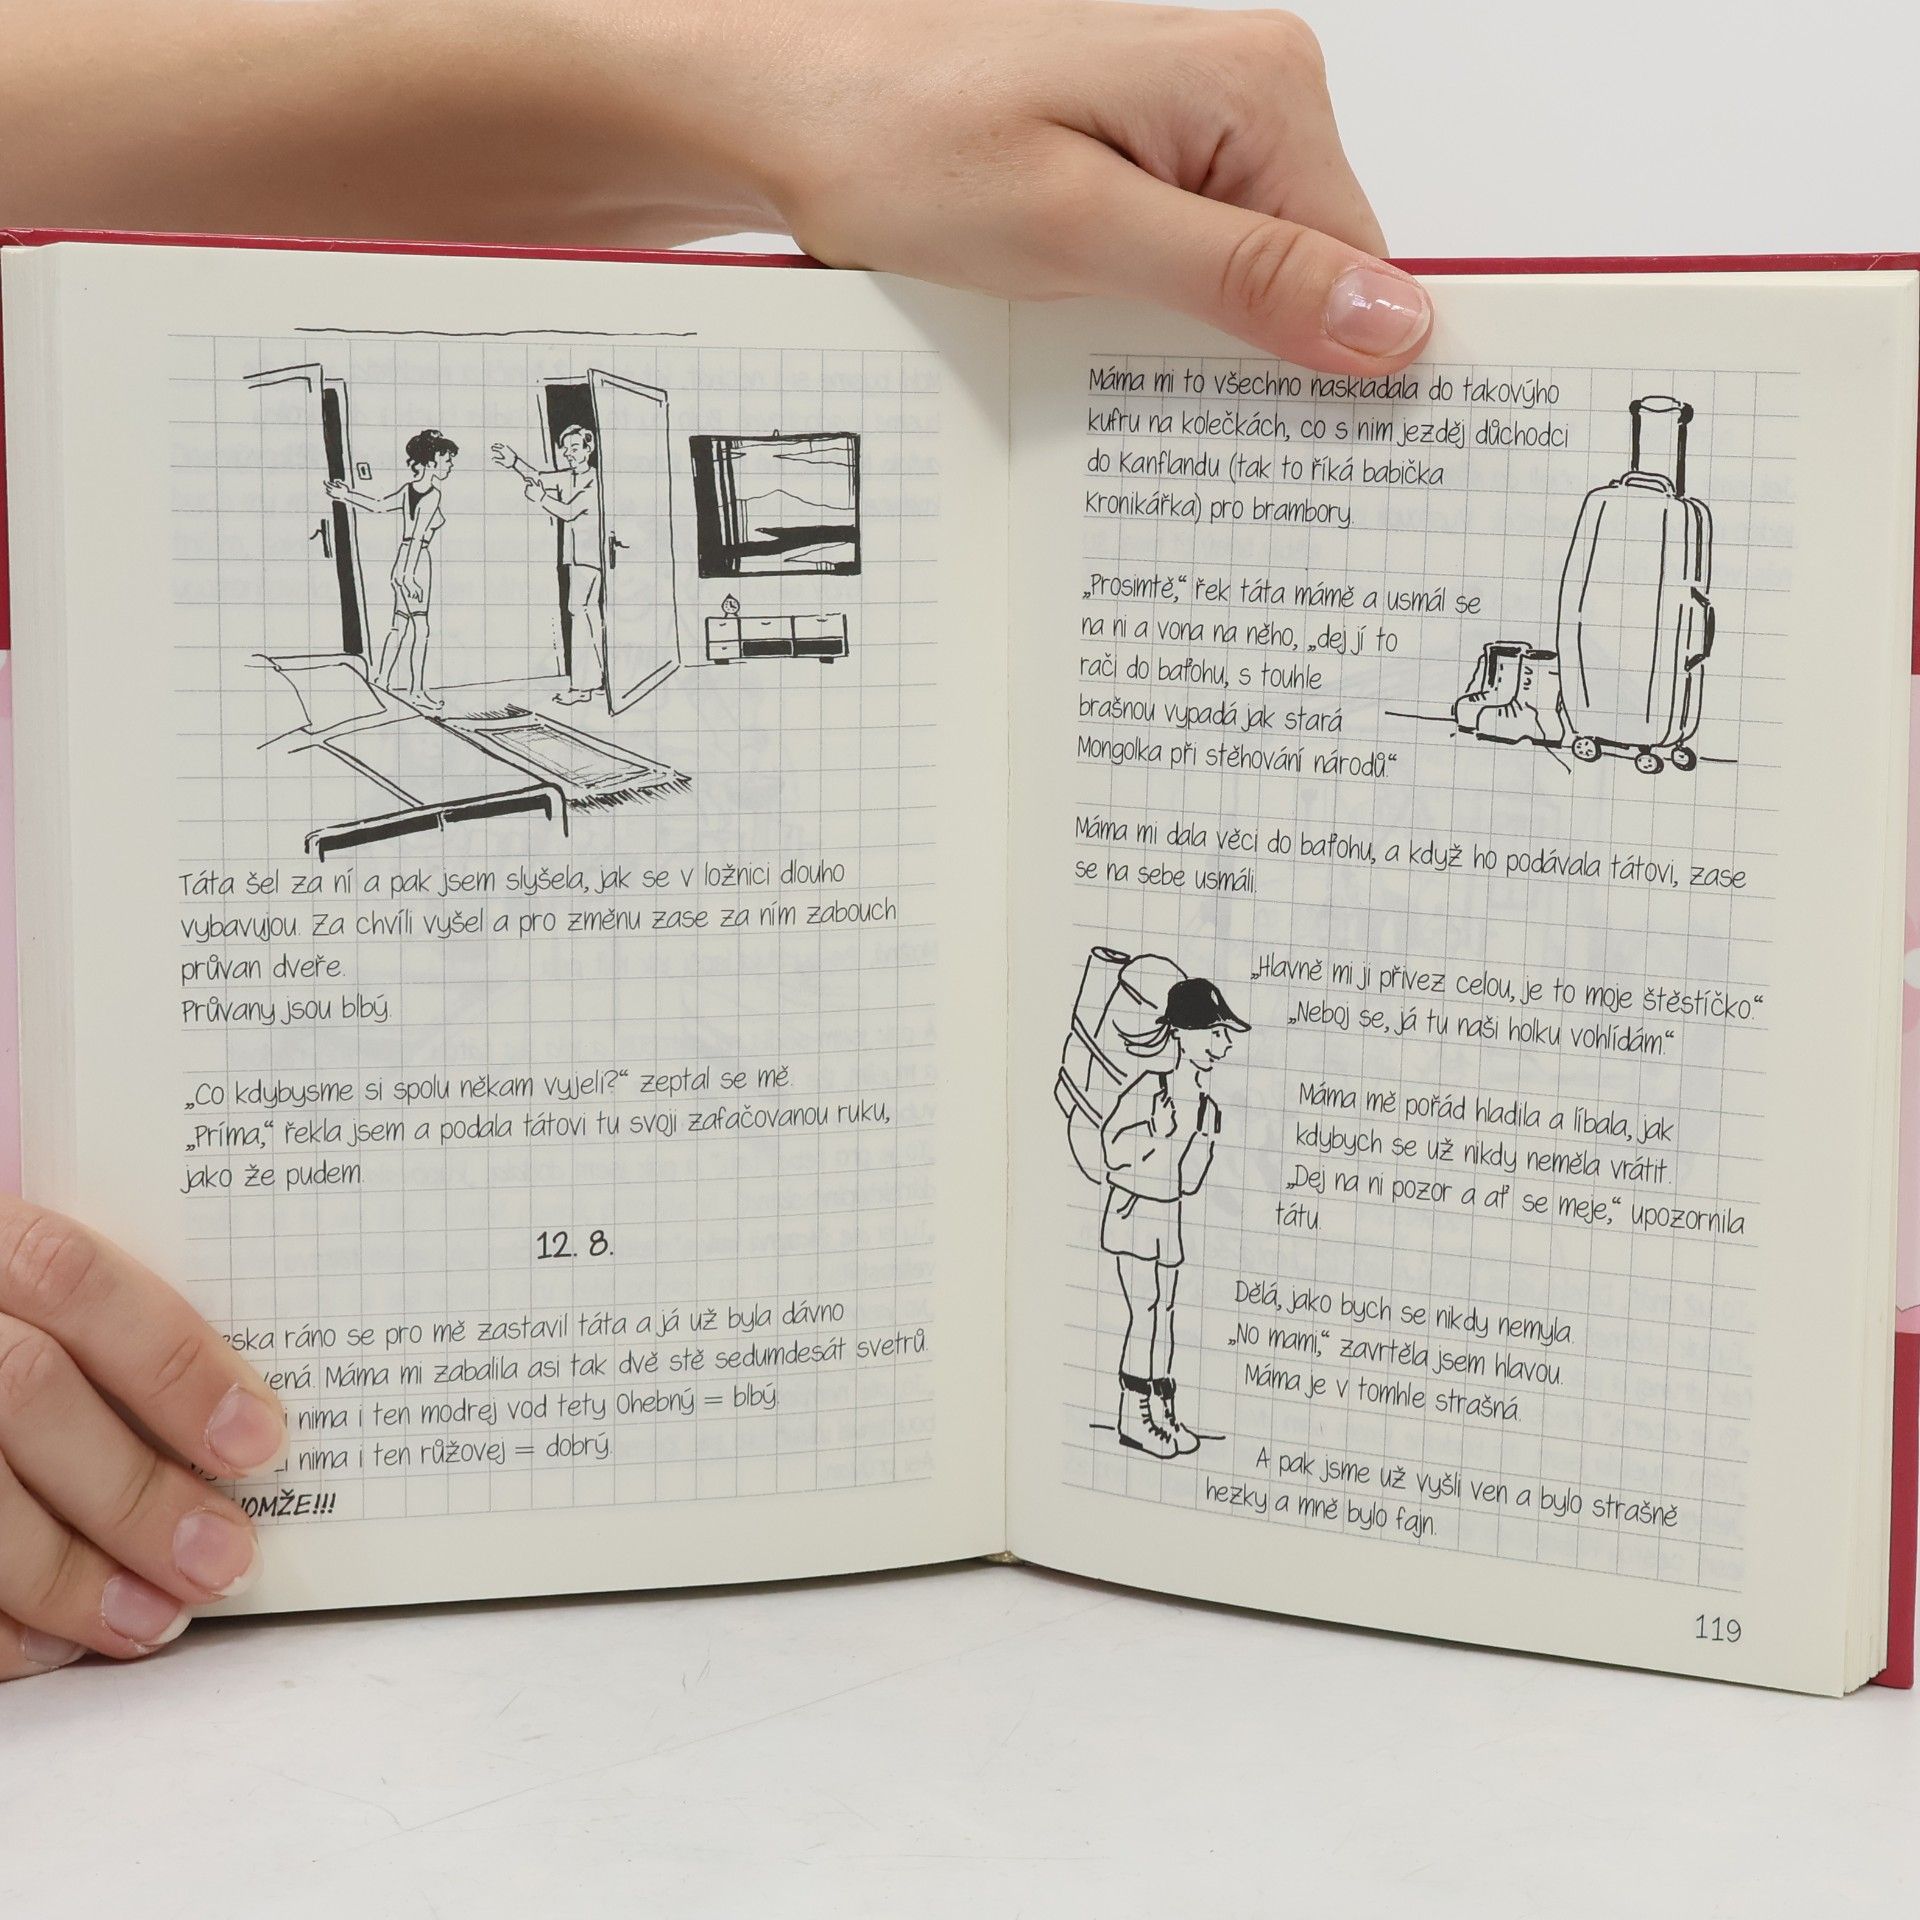 Táta šel za ní a pak jsem slyšela, jak se v ložnici dlouho
vybavujou. Za chvíli vyšel a pro změnu zase za ním zabouch
průvan dveře.
Průvany jsou blbý.
„Co kdybysme si spolu někam vyjeli?“ zeptal se mě.
„Príma,“ řekla jsem a podala tátovi tu svoji zafačovanou ruku,
jako že pudem.
12. 8.
ráno se pro mě zastavil táta a já už byla dávno
Máma mi zabalila asi tak dvě stě sedumdesát svetrů.
nima i ten modrej vod tety Ohebný = blbý.
nima i ten růžovej = dobrý.
Máma mi to všechno naskládala do takovýho
kufru na kolečkách, co s nim jezděj důchodci
do Kanflandu (tak to říká babička
Kronikářka) pro brambory.
„Prosimtě,“ řek táta mámě a usmál se
na ni a vona na něho, „dej jí to
rači do baťohu, s touhle
brašnou vypadá jak stará
Mongolka při stěhování národů.“
Máma mi dala věci do baťohu, a když ho podávala tátovi, zase
se na sebe usmáli.
„Hlavně mi ji přivez celou, je to moje štěstíčko.“
„Neboj se, já tu naši holku vohlídám.“
Máma mě pořád hladila a líbala, jak
kdybych se už nikdy neměla vrátit.
„Dej na ni pozor a ať se meje,“ upozornila
tátu.
Dělá, jako bych se nikdy nemyla.
„No mami,“ zavrtěla jsem hlavou.
Máma je v tomhle strašná.
A pak jsme už vyšli ven a bylo strašně
hezky a mně bylo fajn.
119